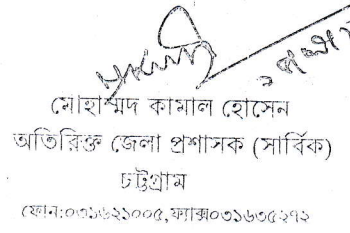 মোহাম্মদ কামাল হোসেন
অতিরিক্ত জেলা প্রশাসক (সার্বিক)
চট্টগ্রাম
ফোন:০৩১৬২১০০৫,ফ্যাক্স০৩১৬৩৫২৭২